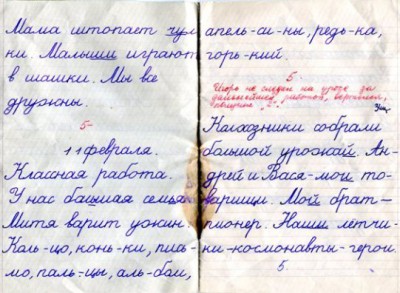 Мама штопает чул
ки. Малыши играют
в шашки. Мы все
дружны.
5-
11 февраля.
Классная работа.
У нас башая семья
Митя варит ужин.
Коль-цо, конь-ки, пись-
мо, паль-цы, аль-бом,
апель-си-ны, редь-ка,
горь-кий.
5.
не следил на уроке за
работой,
Колхозники собрали
большой урожай. Ан-
дрей и Вася-мои то-
варищи. Мой брат-
пионер. Наши лётчи-
ки-космонавты-герои.
5.